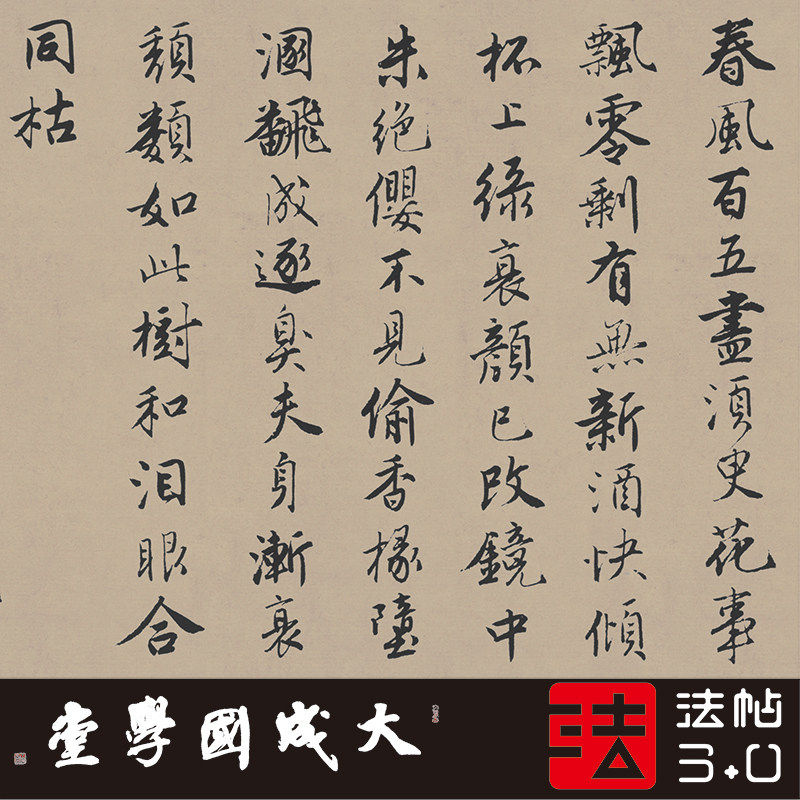 春風百五盡須臾花事
飄零剩有無新酒快傾
杯上綠衰顏已改鏡中
朱絕纓不見偷香椽墮
溷飜成逐臭夫身漸衰
頹類如此樹和泪眼合
同枯
大成國學堂
法
法帖
3.0